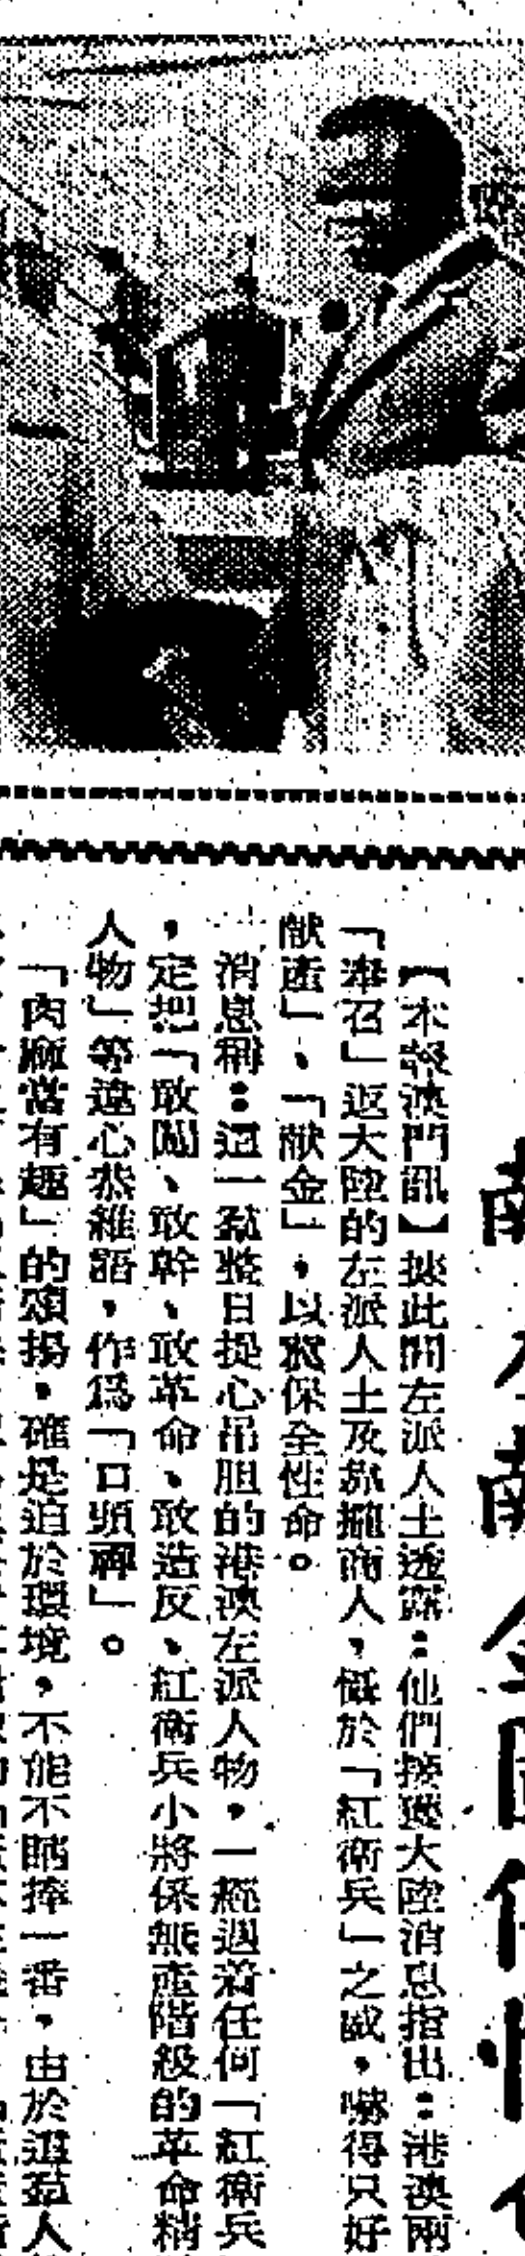 【本報澳門訊】據此間左派人士透露：他們接獲大陸消息指出：港澳兩
「奉召」返大陸的左派人士及靠攏商人，懾於「紅衛兵」之威，嚇得只好
献產」、「献金」，以求保全性命。
消息稱：這一羣整日提心吊胆的港澳左派人物，一經遇着任何「紅衛兵
，定把「敢闖、敢幹、敢革命、敢造反、紅衛兵小將係無產階級的革命精
人物」等違心恭維語，作爲「口頭禪」。
「肉麻當有趣」的頌揚，確是迫於環境，不能不瞎捧一番，由於這羣人